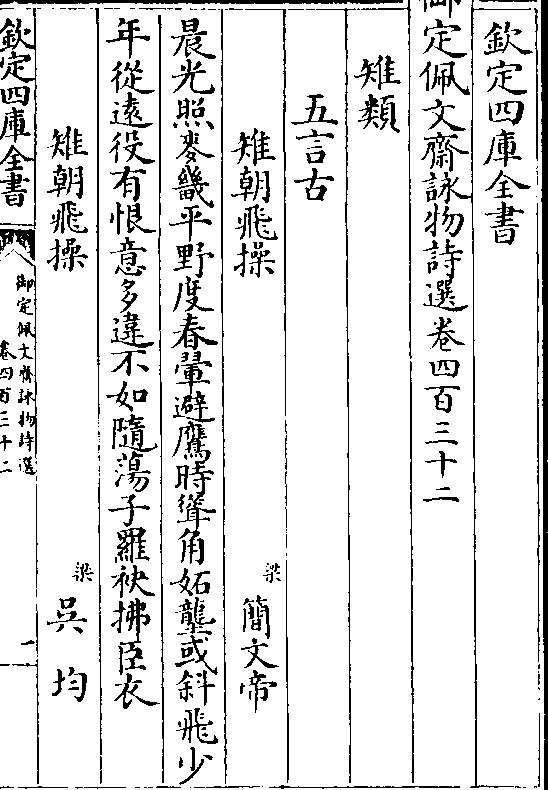 欽定四庫全書
御定佩文齋詠物詩選卷四百三十二
雉類
五言古
雉朝飛操 梁 簡文帝
晨光照麥畿平野度春翬避鷹時聳角妬壟或斜飛少
年從遠役有恨意多違不如隨蕩子羅袂拂臣衣
雉朝飛操 梁 吳均
欽定四庫全書
御定佩文齋詠物詩選
卷四百三十二
一